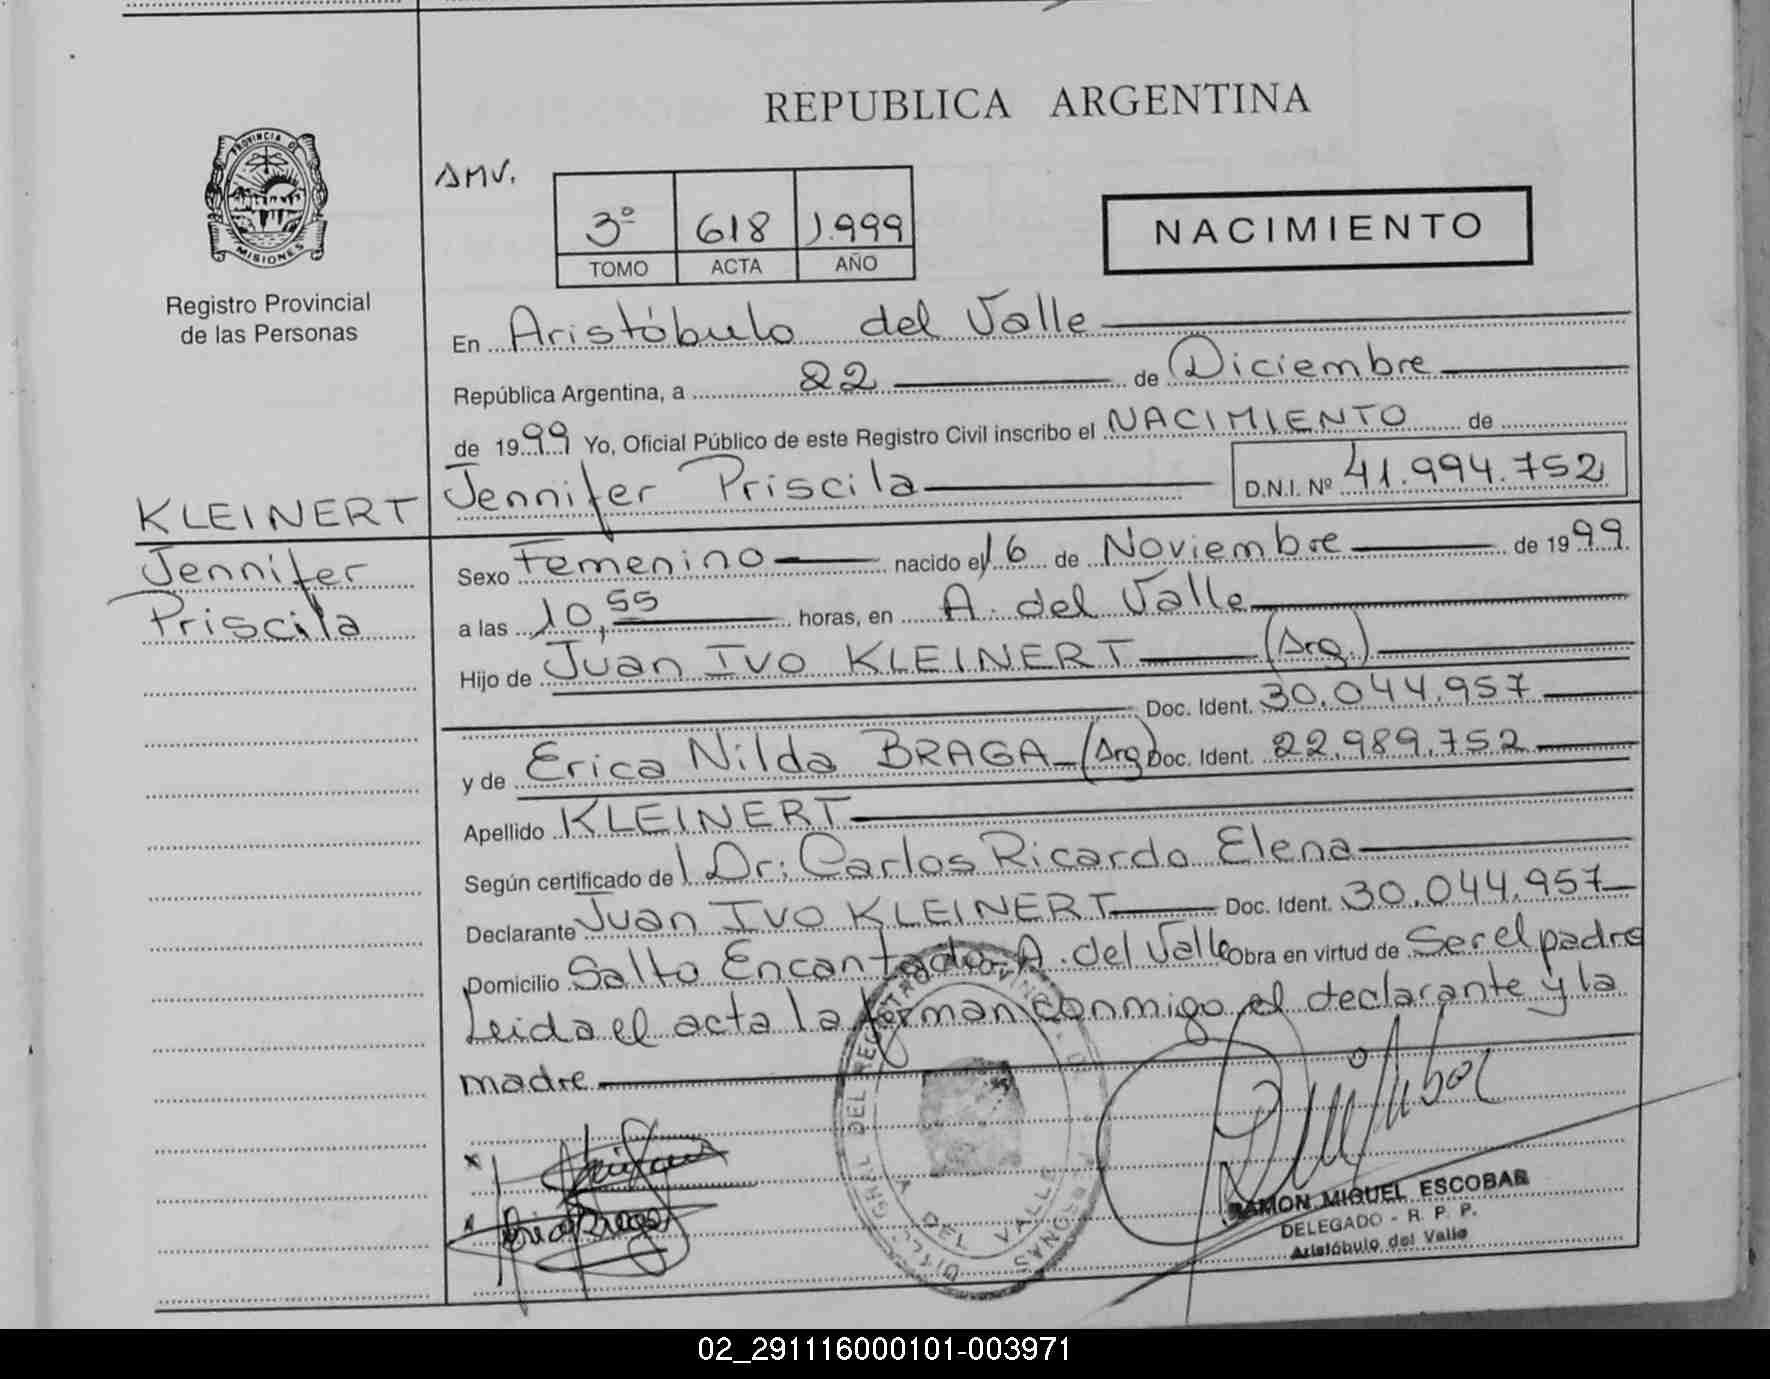 REPUBLICA ARGENTINA
PROVINCIA DE
MISIONES
Registro Provincial
de las Personas
AMV.
3º 618 1.999
TOMO ACTA AÑO
NACIMIENTO
En Aristóbulo del Valle
República Argentina, a 22 de Diciembre
de 1999 Yo, Oficial Público de este Registro Civil inscribo el NACIMIENTO de
Jennifer Priscila D.N.I. Nº 41.994.752
KLEINERT
Jennifer
Priscila
Sexo Femenino nacido el 16 de Noviembre de 1999
a las 10,55 horas, en A. del Valle
Hijo de Juan Ivo KLEINERT (Arg.)
Doc. Ident. 30.044.957
y de Erica Nilda BRAGA (Arg) Doc. Ident. 22.989.752
Apellido KLEINERT
Según certificado del Dr: Carlos Ricardo Elena
Declarante Juan Ivo KLEINERT Doc. Ident. 30.044.957
Domicilio Salto Encantado-A. del Valle Obra en virtud de Ser el padre
Leida el acta la forman conmigo el declarante y la
madre
RAMON MIGUEL ESCOBAR
DELEGADO - R. P. P.
Aristóbulo del Valle
02_291116000101-003971